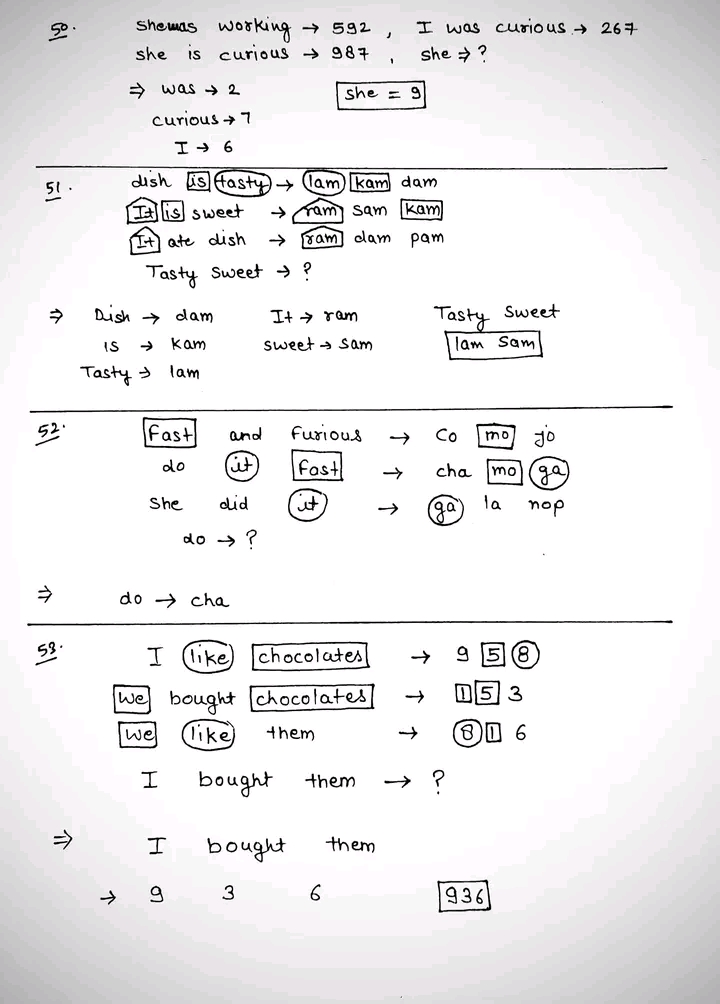 50. Shewas working → 592 , I was curious → 267
she is curious → 987 , she ⇒ ?
⇒ was → 2
she = 9
curious → 7
I → 6
51. dish is tasty → lam kam dam
It is sweet → ram sam kam
It ate dish → ram dam pam
Tasty Sweet → ?
⇒ Dish → dam It → ram Tasty Sweet
is → kam sweet → sam lam sam
Tasty → lam
52. Fast and Furious → Co mo jo
do it Fast → cha mo ga
She did it → ga la nop
do → ?
⇒ do → cha
53. I like chocolates → 9 5 8
We bought chocolates → 1 5 3
We like them → 8 1 6
I bought them → ?
⇒ I bought them
→ 9 3 6 936